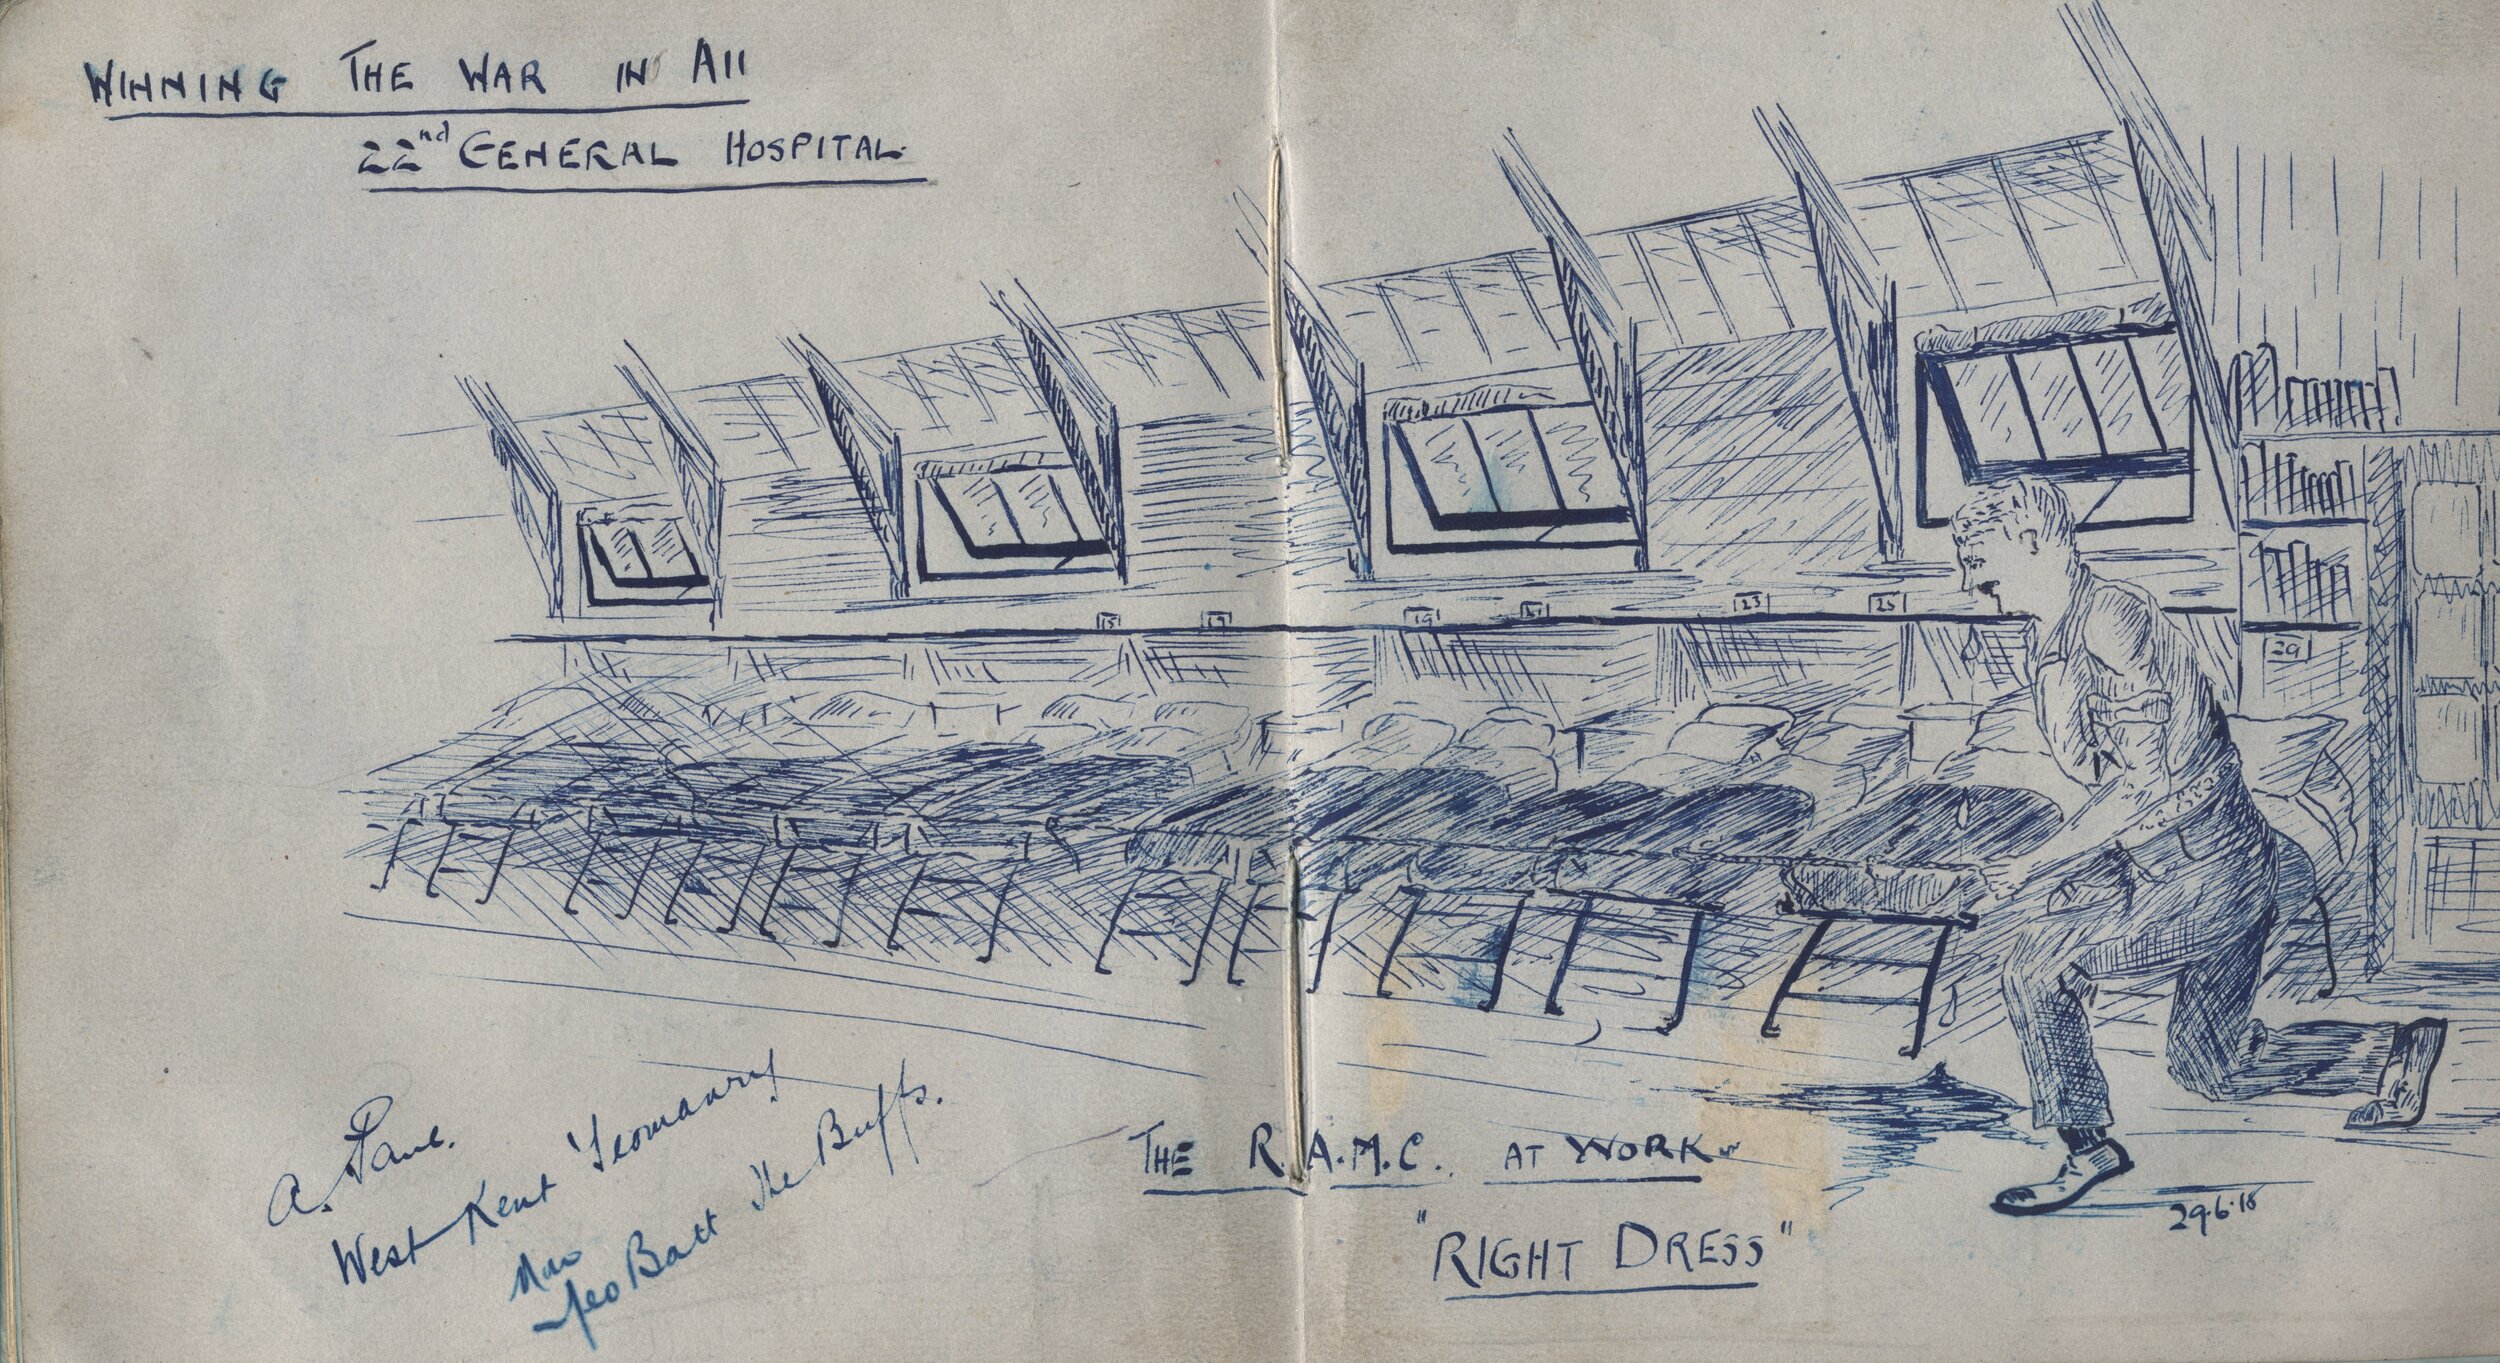 WINNING THE WAR IN A11
22nd GENERAL HOSPITAL.
15 17 19 21 23 25
29
West Kent Yeomanry
Now
Yeo Batt The Buffs.
THE R.A.M.C. AT WORK
"RIGHT DRESS"
29.6.18